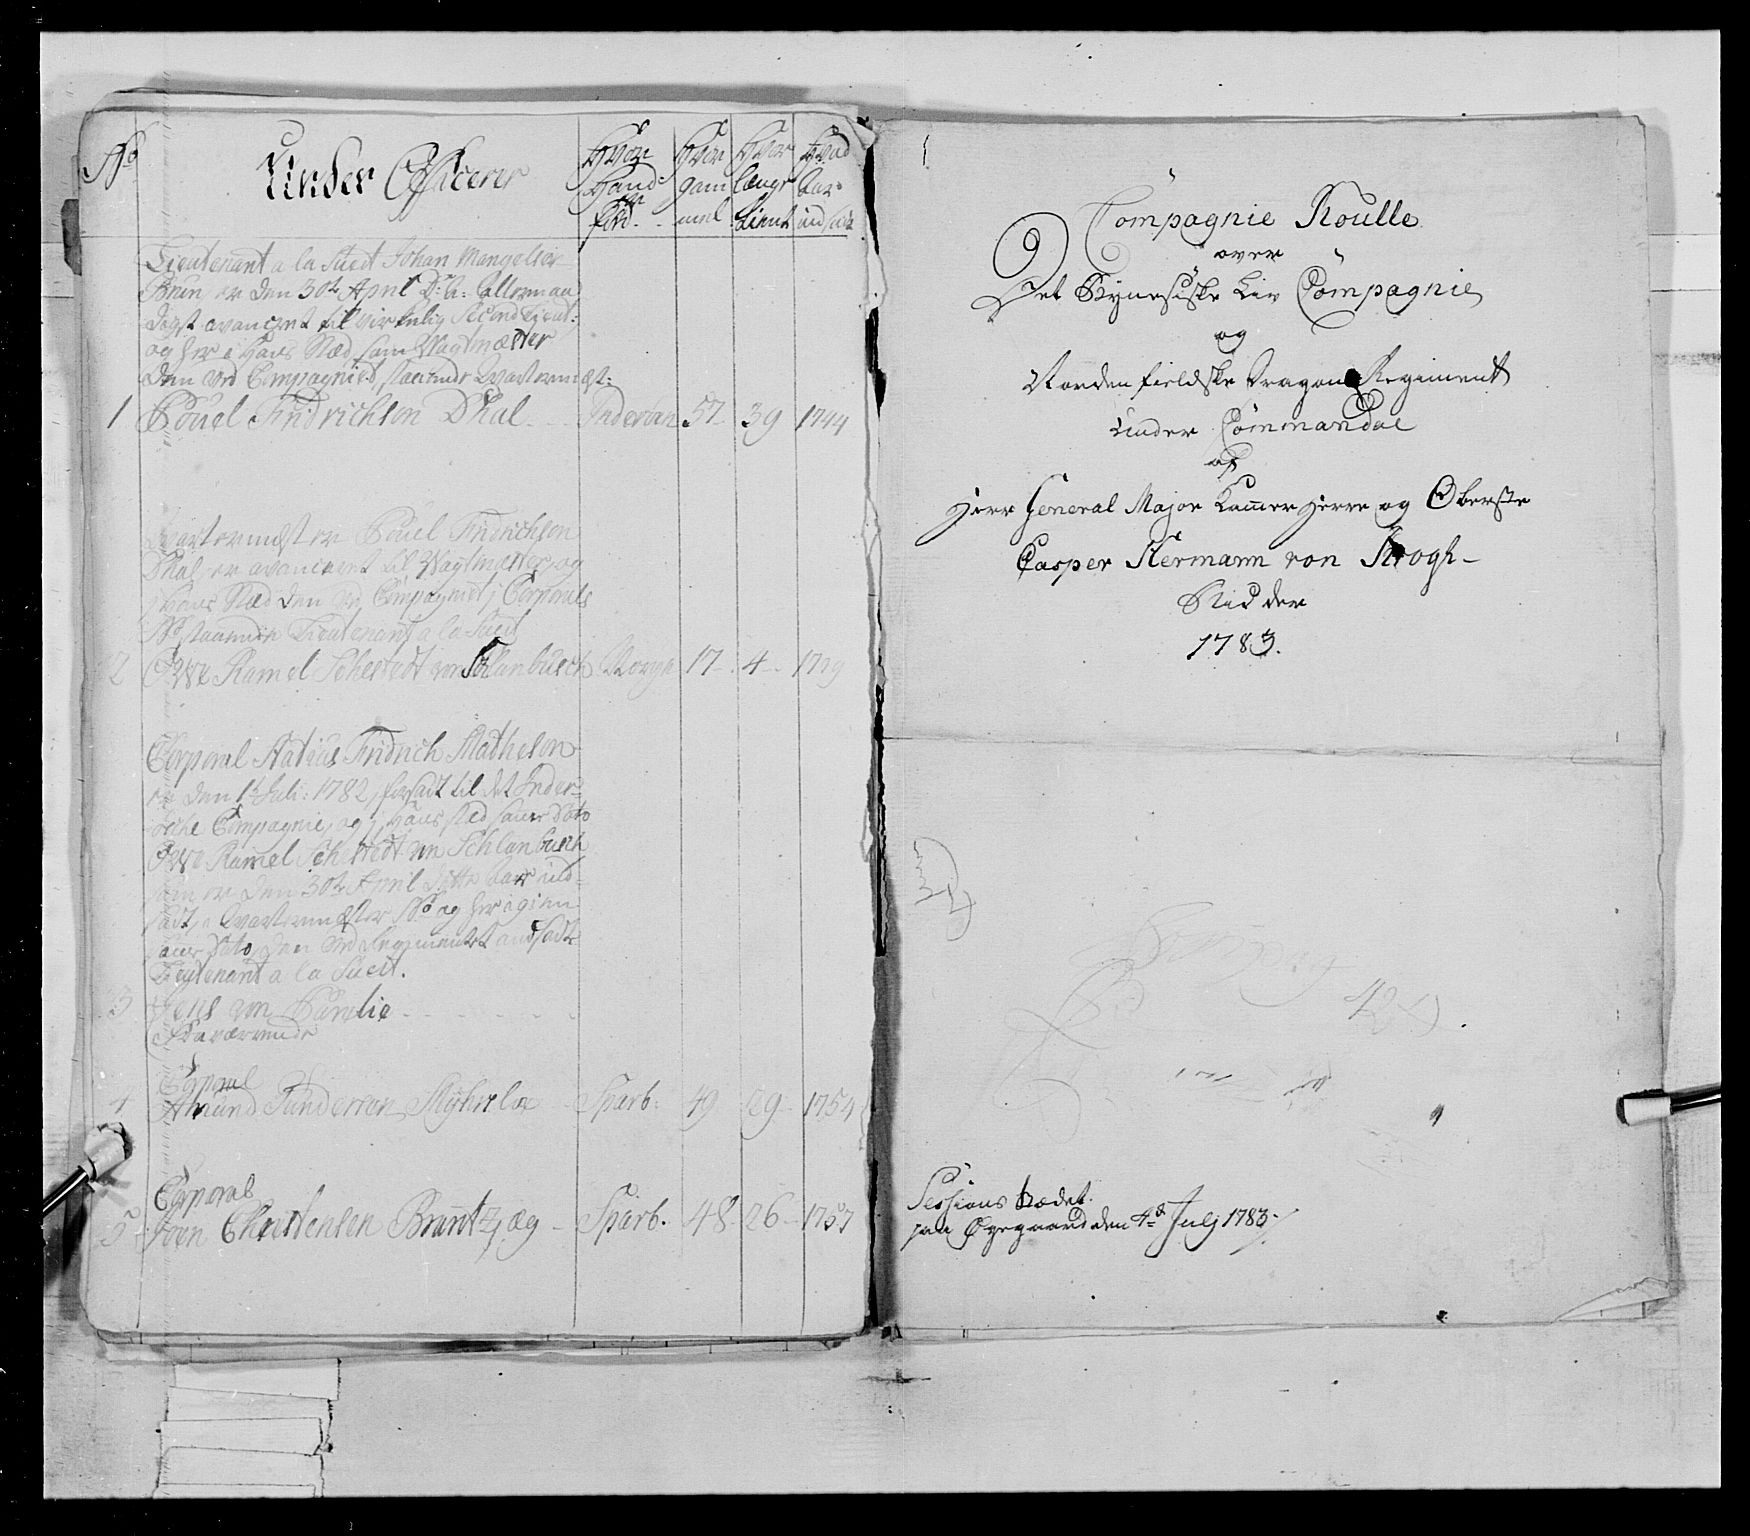 No
Under Officerer
Hvor
Hand
er
fød.
Hvor
gam
mel
Hvor
længe
tient
Hvad
Aar
ind sadt
Lieutenant a la Suest Johan Mangelsen
Brun, er den 30te April D: A: allermaa
digst avanceret til virkelig Second Lieut:
og her i Hans Stæd som Wagtmæster
den ved Compagniet staaende Qvarterm:
1 Pouel Fridrichsen Dhal Inderöen 57 39 1744
Qvartermester Pouel Fridrichsen
Dhal, er avanceret til Wagtmæster, og
i Hans Stæd den ved Compagniet i Corporals
No staaende Lieutenant a la Suest
2 Ove Ramel Sehestedt von Schlanbusch Norge 17 4 1779
Corporal Matias Fridrich Mathesen
er den 1te Juli: 1782, forsadt til det Inder-
öeske Compagnie, og i Hans sted samme Dato
Ove Ramel Sehestedt von Schlanbusch
som er den 30te April dette Aar ind-
sadt, i Qvartermester No og her igien
samme Dato, den ved Regimentet ansadte
Lieutenant a la Suest.
3 Jens von Bamelie
Fraværende
Corporal
4 Amund Gunderson Myhreloe Sparb: 49 29 1754
Corporal
5 Joen Christensen Brantzæg Sparb. 48 26 1757
Compagnie Roulle
over
Det Bynesiske Liv Compagnie
og
Norden fieldske Dragon Regiment
under Commandoe
af
Herr General Major Kammer Herre og Oberste
Casper Hermann von Krogh
Ridder
1783.
Sessions Rædet
paa Øgegaard den 4de Julj 1783